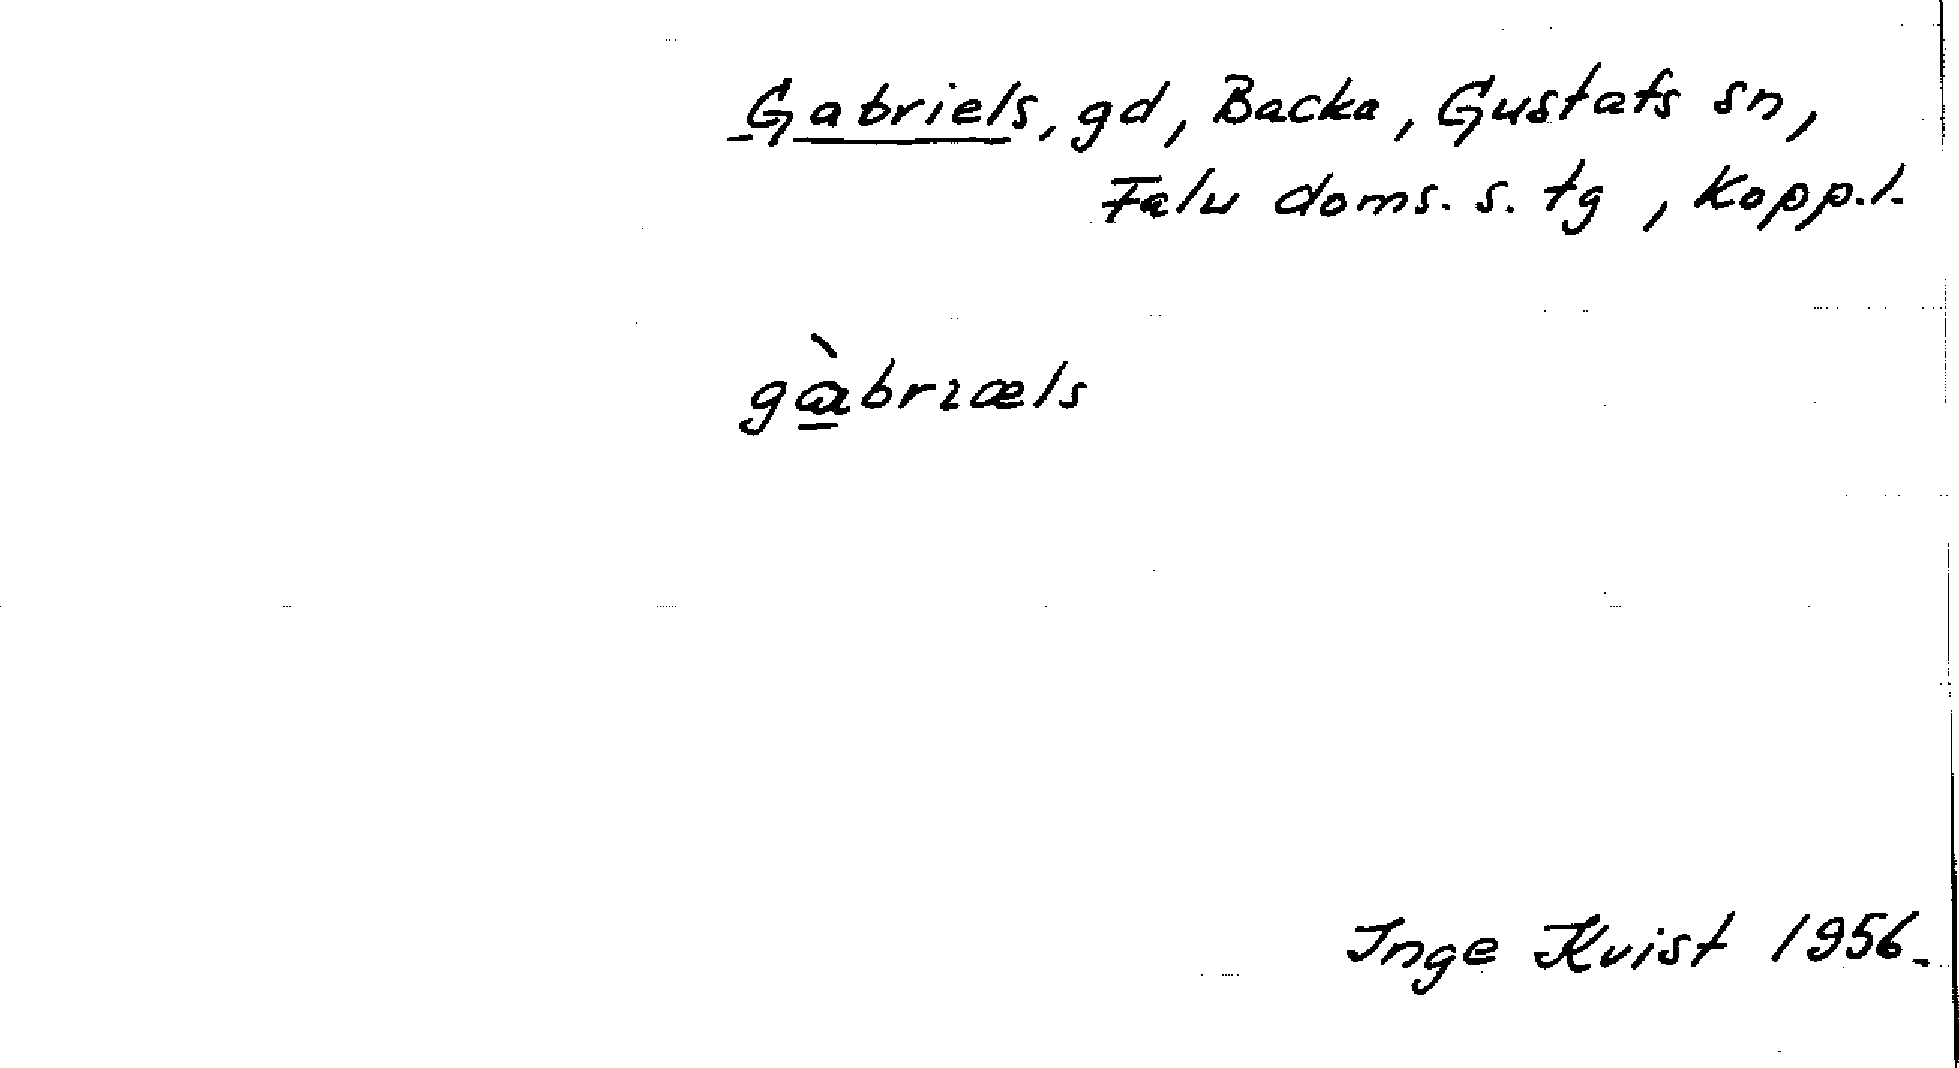 Gabriels, gd, Backa, Gustafs sn,
Falu doms. s. tg, Kopp.l.
gàbrɪæls
Inge Kvist 1956.